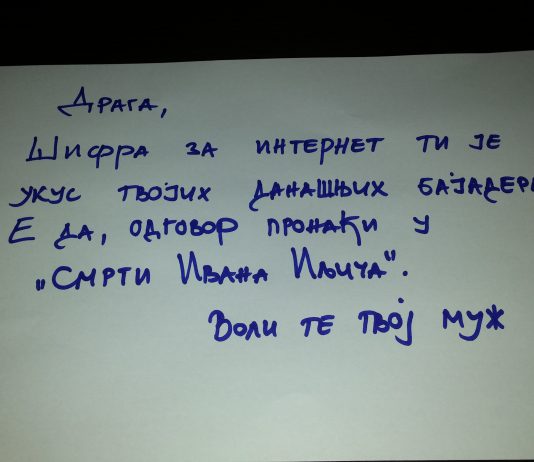 Драга,
Шифра за интернет ти је
укус твојих данашњих бајадера
Е да, одговор пронађи у
„Смрти Ивана Иљича“.
Воли те твој муж